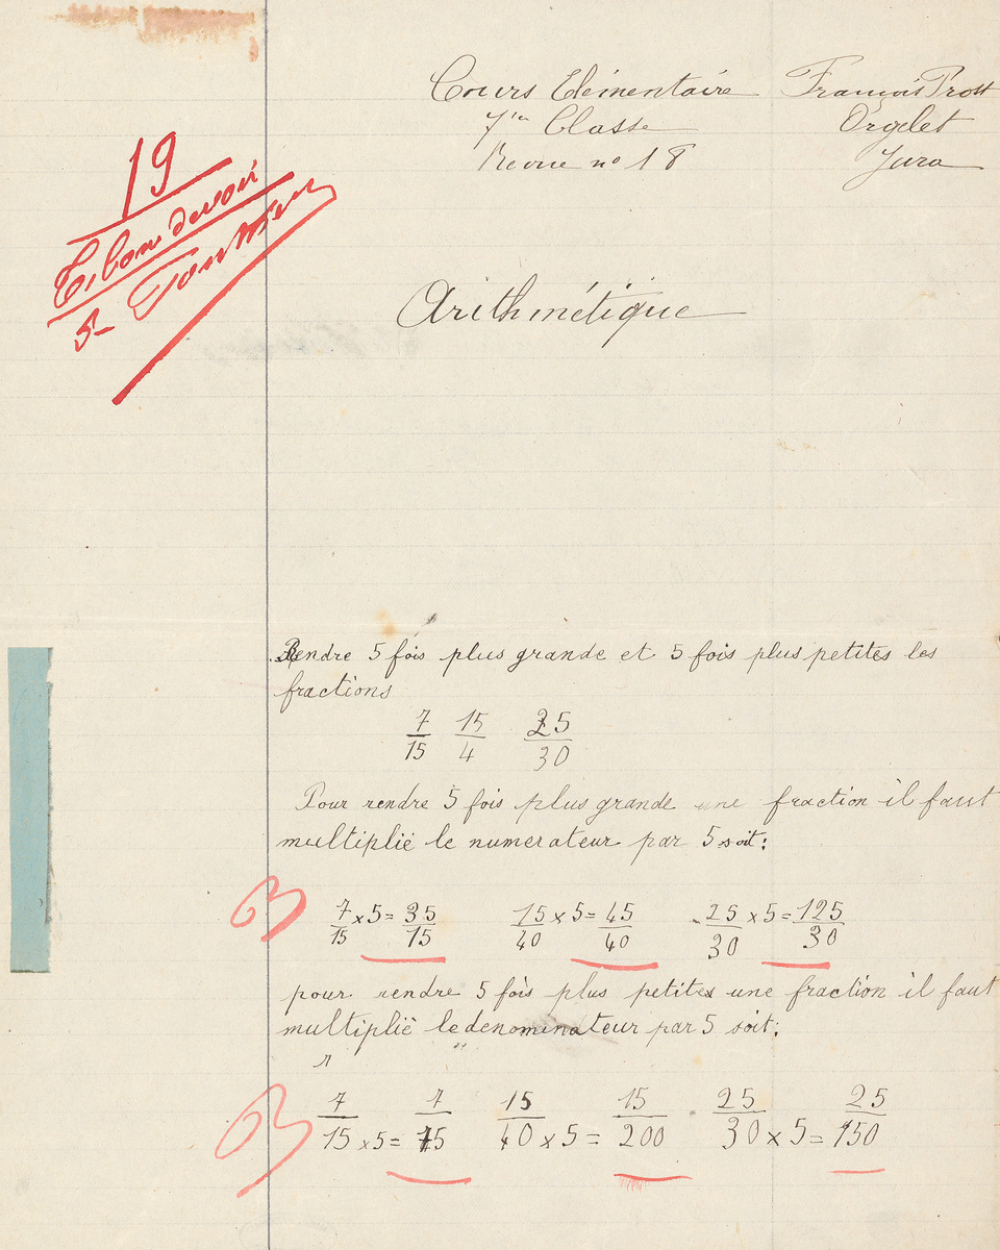 Cours Elémentaire François Prost
7ie Classe Orgelet
Revue no 18 Jura
19
T. bon devoir
Arithmétique
Rendre 5 fois plus grande et 5 fois plus petites les
fractions
7/15 15/4 25/30
Pour rendre 5 fois plus grande une fraction il faut
multiplié le numerateur par 5 soit:
B
7/15 x 5 = 35/15 15/40 x 5 = 45/40 25/30 x 5 = 125/30
pour rendre 5 fois plus petites une fraction il faut
multiplié le denominateur par 5 soit:
B
7/15 x 5 = 7/75 15/40 x 5 = 15/200 25/30 x 5 = 25/150